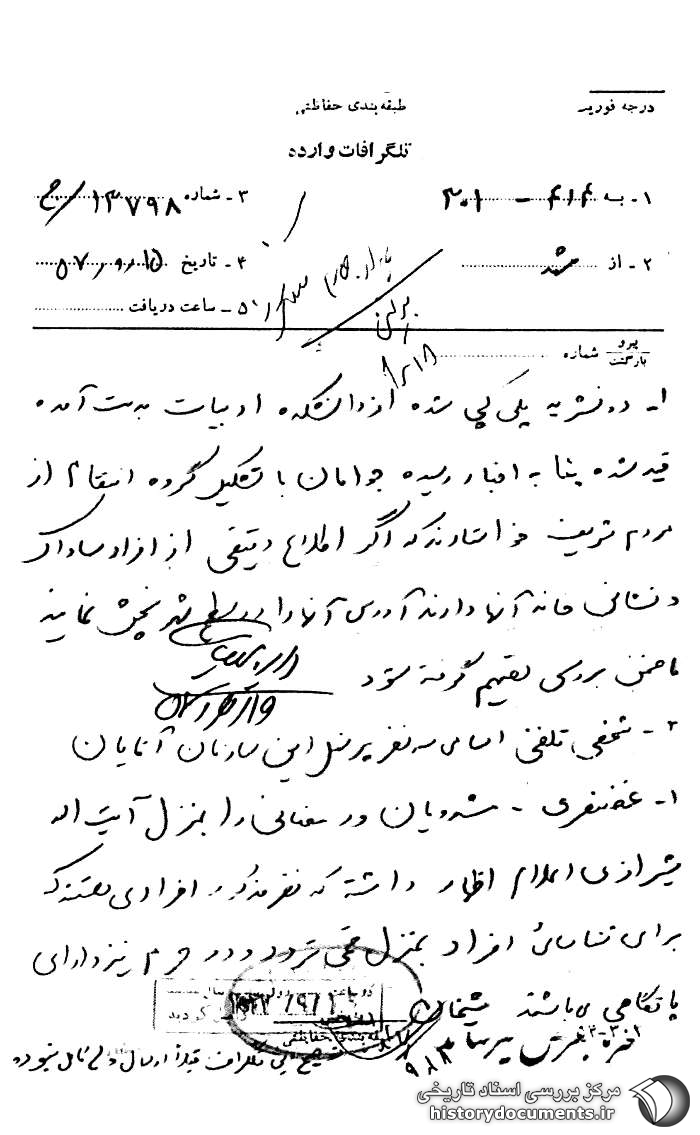 درجه فوریت
طبقه‌بندی حفاظتی
تلگرافات وارده
۱ - به ۴۱۴ - ۳۰۱
۳ - شماره ۱۳۷۹۸/ح
۲ - از مشهد
۴ - تاریخ ۱۵/۹/۵۷
۵ - ساعت دریافت
پیرو
بازگشت
شماره
۱- دو نشریه پلی کپی شده از دانشکده ادبیات بدست آمده
قید شده بنا به اخبار رسیده جوانان با تشکیل گروه انتقام از
مردم شریف خواستارند که اگر اطلاع دقیقی از افراد ساواک
و نشانی خانه آنها دارند آدرس آنها را در سطح شهر پخش نمایند
ضمن بررسی تصمیم گرفته شود
۲- شخصی تلفنی اسامی سه نفر پرسنل این سازمان آقایان
۱- غضنفری - و رمضانی را بمنزل آیت اله
شیرازی اعلام اظهار داشته که نفر مذکور افرادی هستند که
برای شناسائی افراد بمنزل قمی تردد و در حرم نیز دارای
پاتگاهی می‌باشند شیخان
طبقه‌بندی حفاظتی
تلگراف قبلاً ارسال ولی کامل نبوده
مرکز بررسی اسناد تاریخی
historydocuments.ir